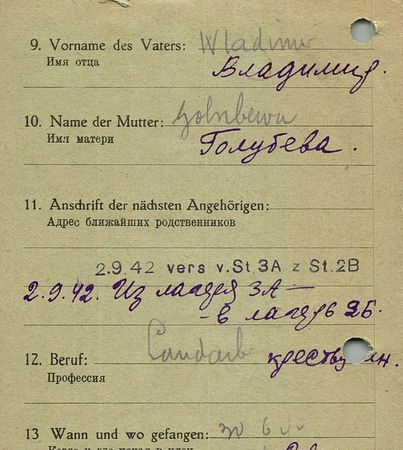 9. Vorname des Vaters: Wladimir
Имя отца
Владимир.
10. Name der Mutter: Golubewa
Имя матери
Голубева.
11. Anschrift der nächsten Angehörigen:
Адрес ближайших родственников
2.9.42 vers v. St. 3A z St. 2B
2.9.42. Из лагеря 3А —
— в лагерь 2Б.
12. Beruf: Landarb
Профессия
13 Wann und wo gefangen: